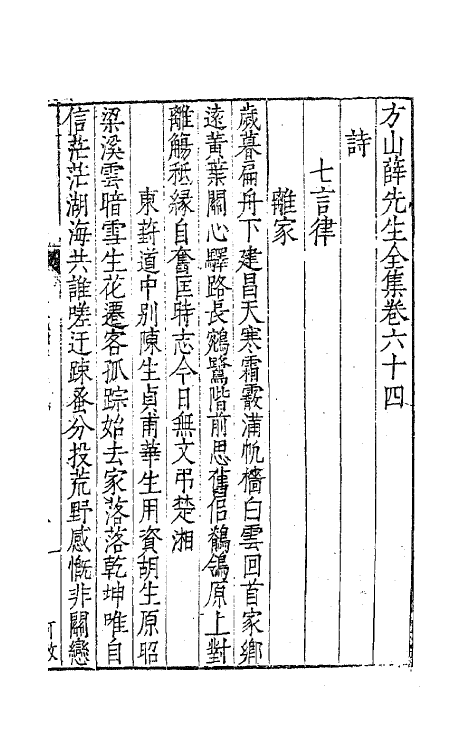 方山薛先生全集卷六十四
詩
七言律
離家
歲暮扁舟下建昌天寒霜霰滿帆檣白雲回首家鄉
遠黃葉關心驛路長鵷鷺階前思舊侶鶺鴒原上對
離觴秪緣自奮匡時志今日無文弔楚湘
東葑道中别陳生貞甫華生用資胡生原昭
梁溪雲暗雪生花遷客孤踪始去家落落乾坤唯自
信茫茫湖海共誰嗟迂踈蚤分投荒野感慨非關戀